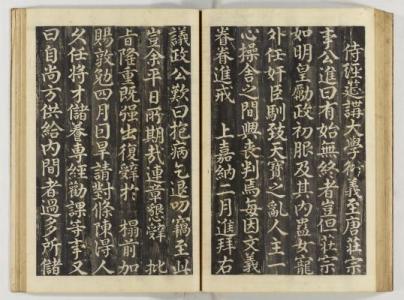 侍經筵講大學衍義至唐莊宗
事公進曰有始無終者豈但莊宗
如明皇勵政初服及其內嬖女寵
外任奸臣馴致天寶之亂人主一
心操舍之間興喪判焉每因文義
眷眷進戒 上嘉納二月進拜右
議政公歎曰抱病乞退叨竊至此
豈余平日所期哉連章懇辭 批
旨隆重既强出復辭於 榻前加
賜敦勉四月因旱請對條陳得人
久任將才儲養專經勸課等事又
曰自尚方供給內間者過多所儲